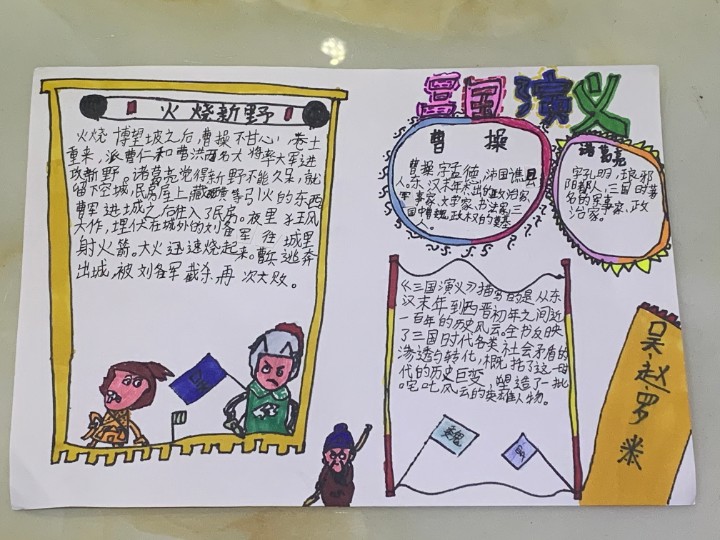 火烧新野
火烧博望坡之后,曹操不甘心,卷土
重来,派曹仁和曹洪两名大将率大军进
攻新野。诸葛亮觉得新野不能久呆,就
留下空城,民房屋上藏等引火的东西
曹军进城之后住入了民房。夜里狂风
大作,埋伏在城外的刘备军往城里
射火箭。大火迅速烧起来。曹兵逃奔
出城,被刘备军截杀,再次大败。
三国演义
曹操
曹操字孟德,沛国谯县
人。东汉末年杰出的政治家、
军事家、文学家、书法家
国中曹魏政权的奠基
人。
诸葛亮
字孔明,琅邪
阳都人,三国时著
名的军事家、政
治家。
《三国演义》描写的是从东
汉末年到西晋初年之间近
一百年的历史风云。全书反映
了三国时代各类社会矛盾的
渗透与转化,概括了这一时
代的历史巨变,塑造了一批
咤叱风云的英雄人物。
魏
吴赵罗